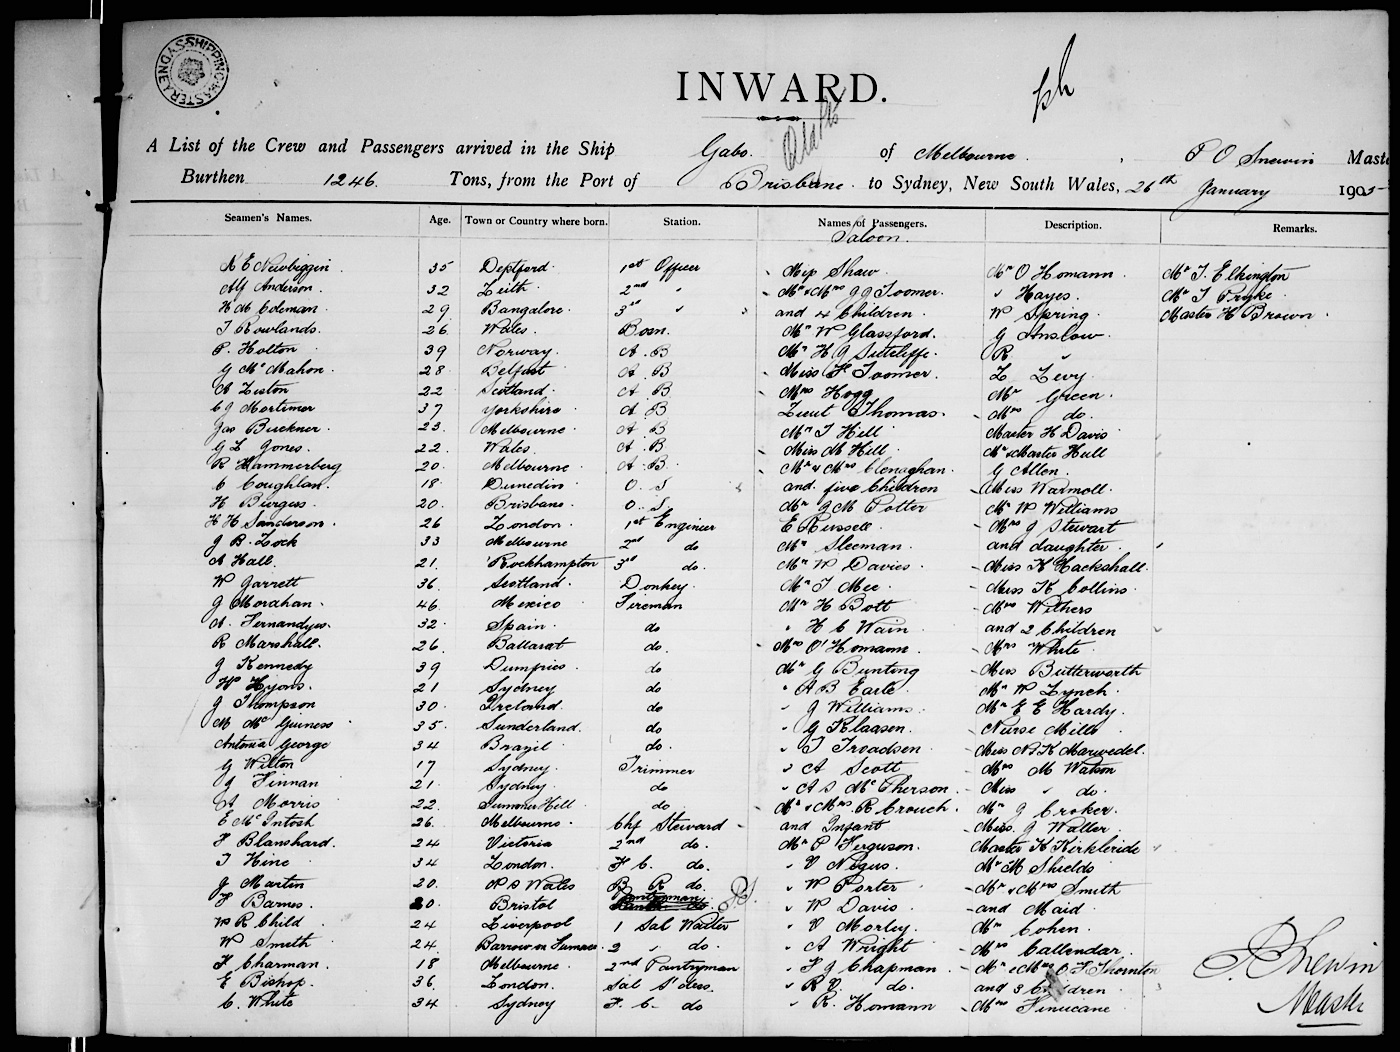 SHIPPING MASTER SYDNEY
INWARD.
A List of the Crew and Passengers arrived in the Ship Gabo. of Melbourne. Master
Burthen 1246. Tons, from the Port of Brisbane to Sydney, New South Wales, 26th January 1905
Seamen's Names. Age. Town or Country where born. Station. Names of Passengers. Description. Remarks.
Saloon.
A E Newbiggin 35 Deptford 1st Officer Miss Shaw Mr O Homann Mr T. Elkington
Alf Anderson 32 Leith 2nd " Mr & Mrs J J Toomer. " Hayes. Mr T Pryke
H M Coleman 29 Bangalore 3rd " and 4 Children W Spring Master H Brown
T Rowlands. 26 Wales. Bosn. Mr W Glassford. G Anslow
P. Holton 39 Norway. A. B Mr H G Sutcliffe. R "
G McMahon. 28 Belfast A. B Miss F Toomer. L Levy
A Liston 22 Scotland A. B Mrs Hogg Mr Green
C J Mortimer 37 Yorkshire A B Lieut Thomas. Mrs do.
Jas Buckner. 23. Melbourne A B Mr T Hill Master H Davis
G L Jones. 22. Wales. A. B Miss M Hill Mr & Master Hull
R Hammerberg 20. Melbourne A. B. Mr & Mrs Clenaghan. G Allen.
C Coughlan. 18 Dunedin O. S and five Children Miss Warmoll.
H Burgess 20. Brisbane O. S. Mr J M Potter Mr W Williams
H H Sanderson. 26 London. 1st Engineer E Russell. Mrs J Stewart
J B. Lock 33 Melbourne 2nd do Mr Sleeman. and daughter
A Hall. 21. Rockhampton 3rd do. Mr W Davies. Miss K Hackshall.
W Garrett 36. Scotland. Donkey. Mr T Mee Miss K Collins.
J Morahan. 46 Mexico Fireman Mr H Bott Mrs Withers
A. Fernandyes. 32 Spain. do " H C Wain and 2 Children
R Marshall. 26 Ballarat do. Mrs O'Homann. Mrs White
J Kennedy 39 Dumfries. do Mr G Bunting Miss Butterworth
W Hyons. 21 Sydney do " A B Earle Mr W Lynch
J Thompson 30 Ireland. do " J Williams. Mr E E Hardy.
M McGuiness 35. Sunderland. do " G Klaasen. Nurse Mills
Antonia George 34 Brazil do. " T Troadsen Miss N K Marwedel.
G Wilton 17 Sydney. Trimmer " A Scott Mrs M Watson
J Finnan 21. Sydney. do " A S McPherson. Miss " do.
A Morris 22. Summer Hill do Mr & Mrs R Crouch. Mr J Croker.
E McIntosh 26. Melbourne. Chf Steward and Infant Miss. J Walter
F Blanshard. 24 Victoria 2nd do. Mr P Ferguson. Master K Kirkleride
T Hine 34 London. F C. do. " V Negus. Mr M Shields
J Martin 20. N S Wales B R do. " W Porter Mr & Mrs Smith
F Barnes. 20 Bristol Pantryman " W Davis and Maid
W R Child 24 Liverpool 1 Sal Waiter " V Morley. Mr Cohen.
W Smith 24 Barrow in Furness 2 " do. " A Wright Mrs Callendar.
F Charman. 18 Melbourne. 2nd Pantryman " F J Chapman Mr & Mrs O F Thornton
E Bishop. 36. London. Sal S'dess. " R V. do. and 3 Children
C. White 34 Sydney F. C. do " R. Homann Mrs Finucane
Master